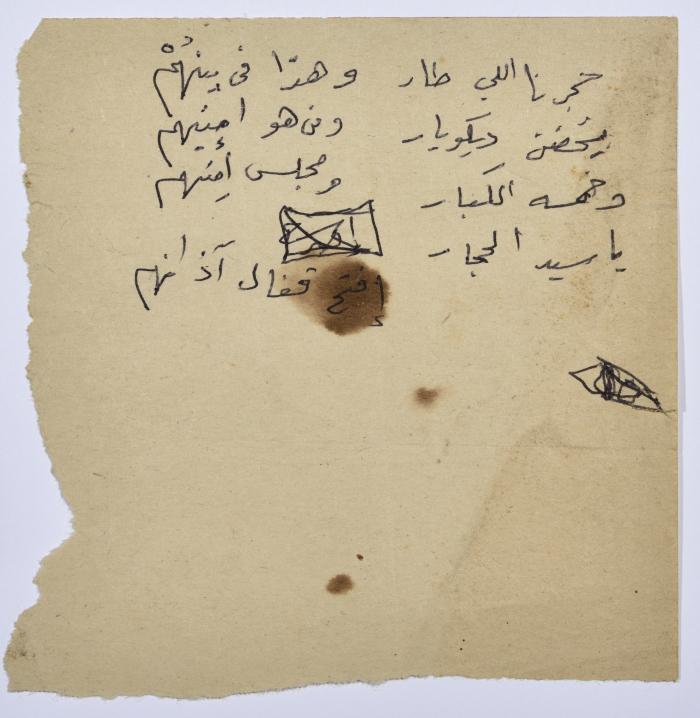 حجرنا اللي طار وهدّا فى بينهُم
بحُضن ديكويار ومن هو امينهم
وخمسه الكبار ومجلس أمنهم
يا سيد الحجار إفتح قفال آذانهم